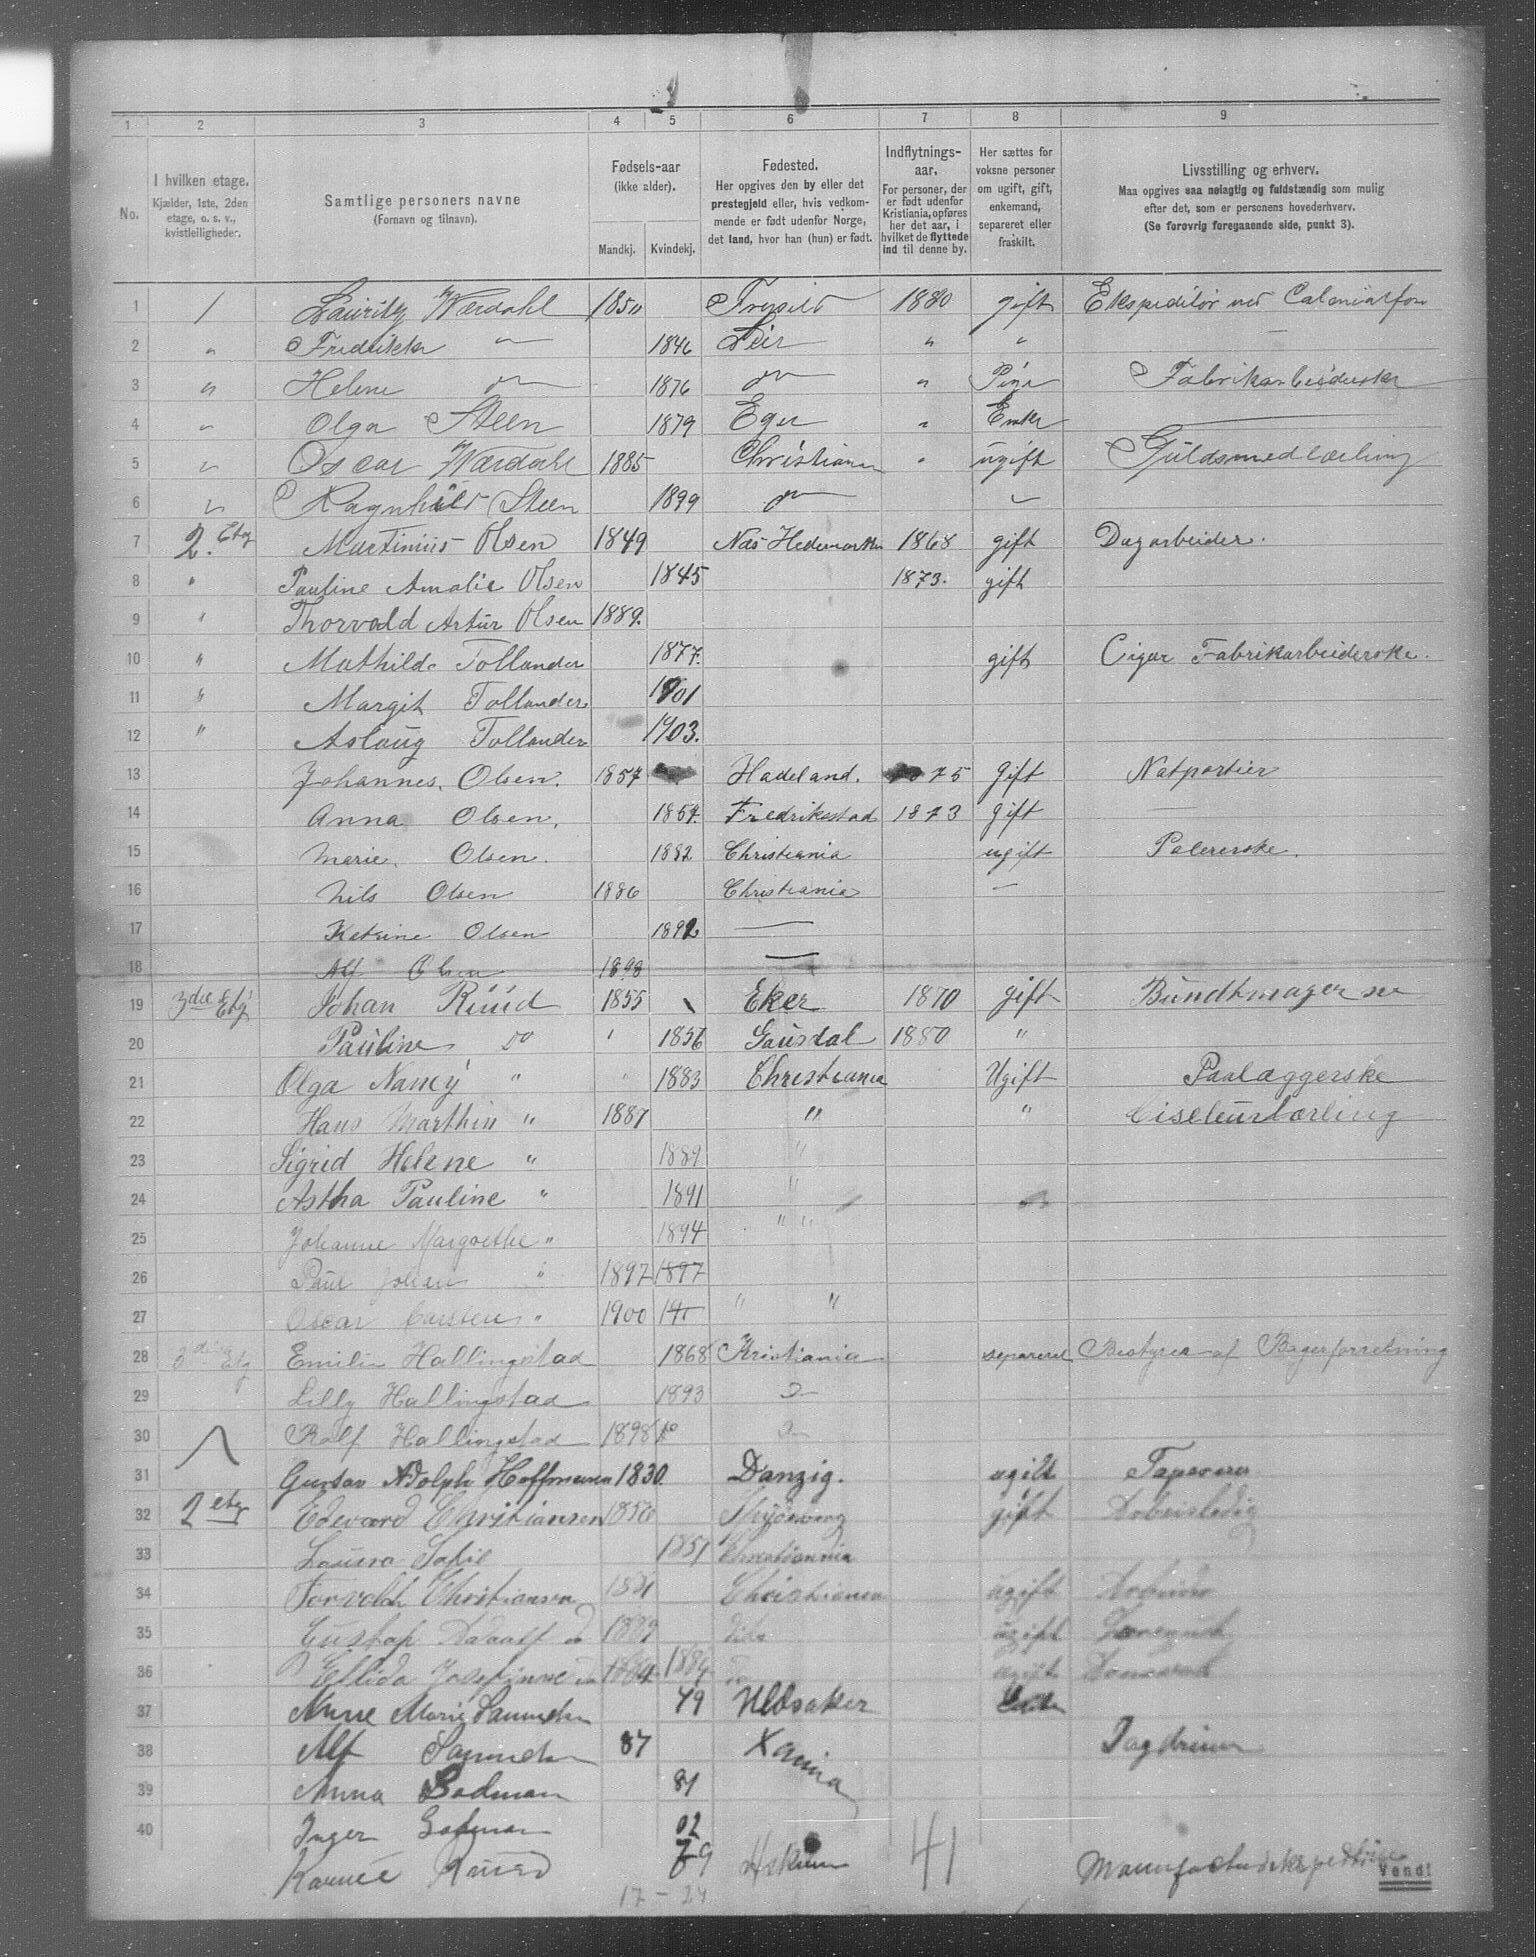 1 2 3 4 5 6 7 8 9
No.
I hvilken etage.
Kjælder, 1ste, 2den
etage, o. s. v.,
kvistleiligheder.
Samtlige personers navne
(Fornavn og tilnavn).
Fødsels-aar
(ikke alder).
Mandkj. Kvindekj.
Fødested.
Her opgives den by eller det
prestegjeld eller, hvis vedkom-
mende er født udenfor Norge,
det land, hvor han (hun) er født.
Indflytnings-
aar.
For personer, der
er født udenfor
Kristiania, opføres
her det aar, i
hvilket de flyttede
ind til denne by.
Her sættes for
voksne personer
om ugift, gift,
enkemand,
separeret eller
fraskilt.
Livsstilling og erhverv.
Maa opgives saa nøiagtig og fuldstændig som mulig
efter det, som er personens hovederhverv.
(Se forøvrig foregaaende side, punkt 3).
1 1 Lauritz Wærdahl 1850 1880 gift Ekspeditör ved Colonialfor
2 " Fredrikke — 1846 Lier " " —
3 " Helene — 1876 — " Pige Fabrikarbeiderske
4 " Olga Steen 1879 Eger " Enke —
5 " Oscar Wærdahl 1885 Christiania " ugift Guldsmedlærling
6 " Ragnhild Steen 1899 — "
7 2. Etg Martinius Olsen 1849 Næs Hedemarken 1868 gift Dagarbeider.
8 " Pauline Amalie Olsen 1845 1873. gift
9 " Thorvald Artur Olsen 1889.
10 " Mathilde Tollander 1877. gift Cigar Fabrikarbeiderske.
11 " Margit Tollander 1901
12 " Aslaug Tollander 1903.
13 Johannes. Olsen. 1857 Hadeland. 1875 Gift Natportier
14 Anna Olsen. 1857. Fredrikstad 1873 gift —
15 Marie. Olsen. 1882 Christiania ugift Polererske.
16 Nils Olsen 1886 Christiania —
17 Katrine Olsen 1892 —
18 Alf Olsen 1898 —
19 3die Etg Johan Ruud 1855 Eker 1870 gift Bundtmager sv
20 Pauline do " 1856 Gausdal 1880 "
21 Olga Nancy " " 1883 Christiania Ugift Paalæggerske
22 Hans Marthin " 1887 " " Ciseleurlærling
23 Sigrid Helene " 1889 "
24 Astha Pauline " 1891 "
25 Johanne Margrethe " 1894 " "
26 Paul Johan " 1897 1897
27 Oscar Carsten " 1900 19 " "
28 3die Etg Emilie Hallingstad 1868 Kristiania separeret Bestyrer af Bagerforretning
29 Lilly Hallingstad 1893 —
30 Rolf Hallingstad 1898 —
31 Gustav Adolph Hoffmann 1830. Danzig. ugift Taperer
32 2 etg Edevard Christiansen 1850 gift Arbeisledig
33 Laura Sofie 1851 Christiania
34 Torvald Christiansen Christiania ugift Arbeider
35 Gustaf Adaalf do 1889 ugift
36 Ellida Josefinne do 1884 1884 ugift
37 Anne Marie 49 Enke
38 Alf 87 Xania
39 Anna Bodman 81
40 Inger Bodman 02
79 41
17 - 24
Vend!